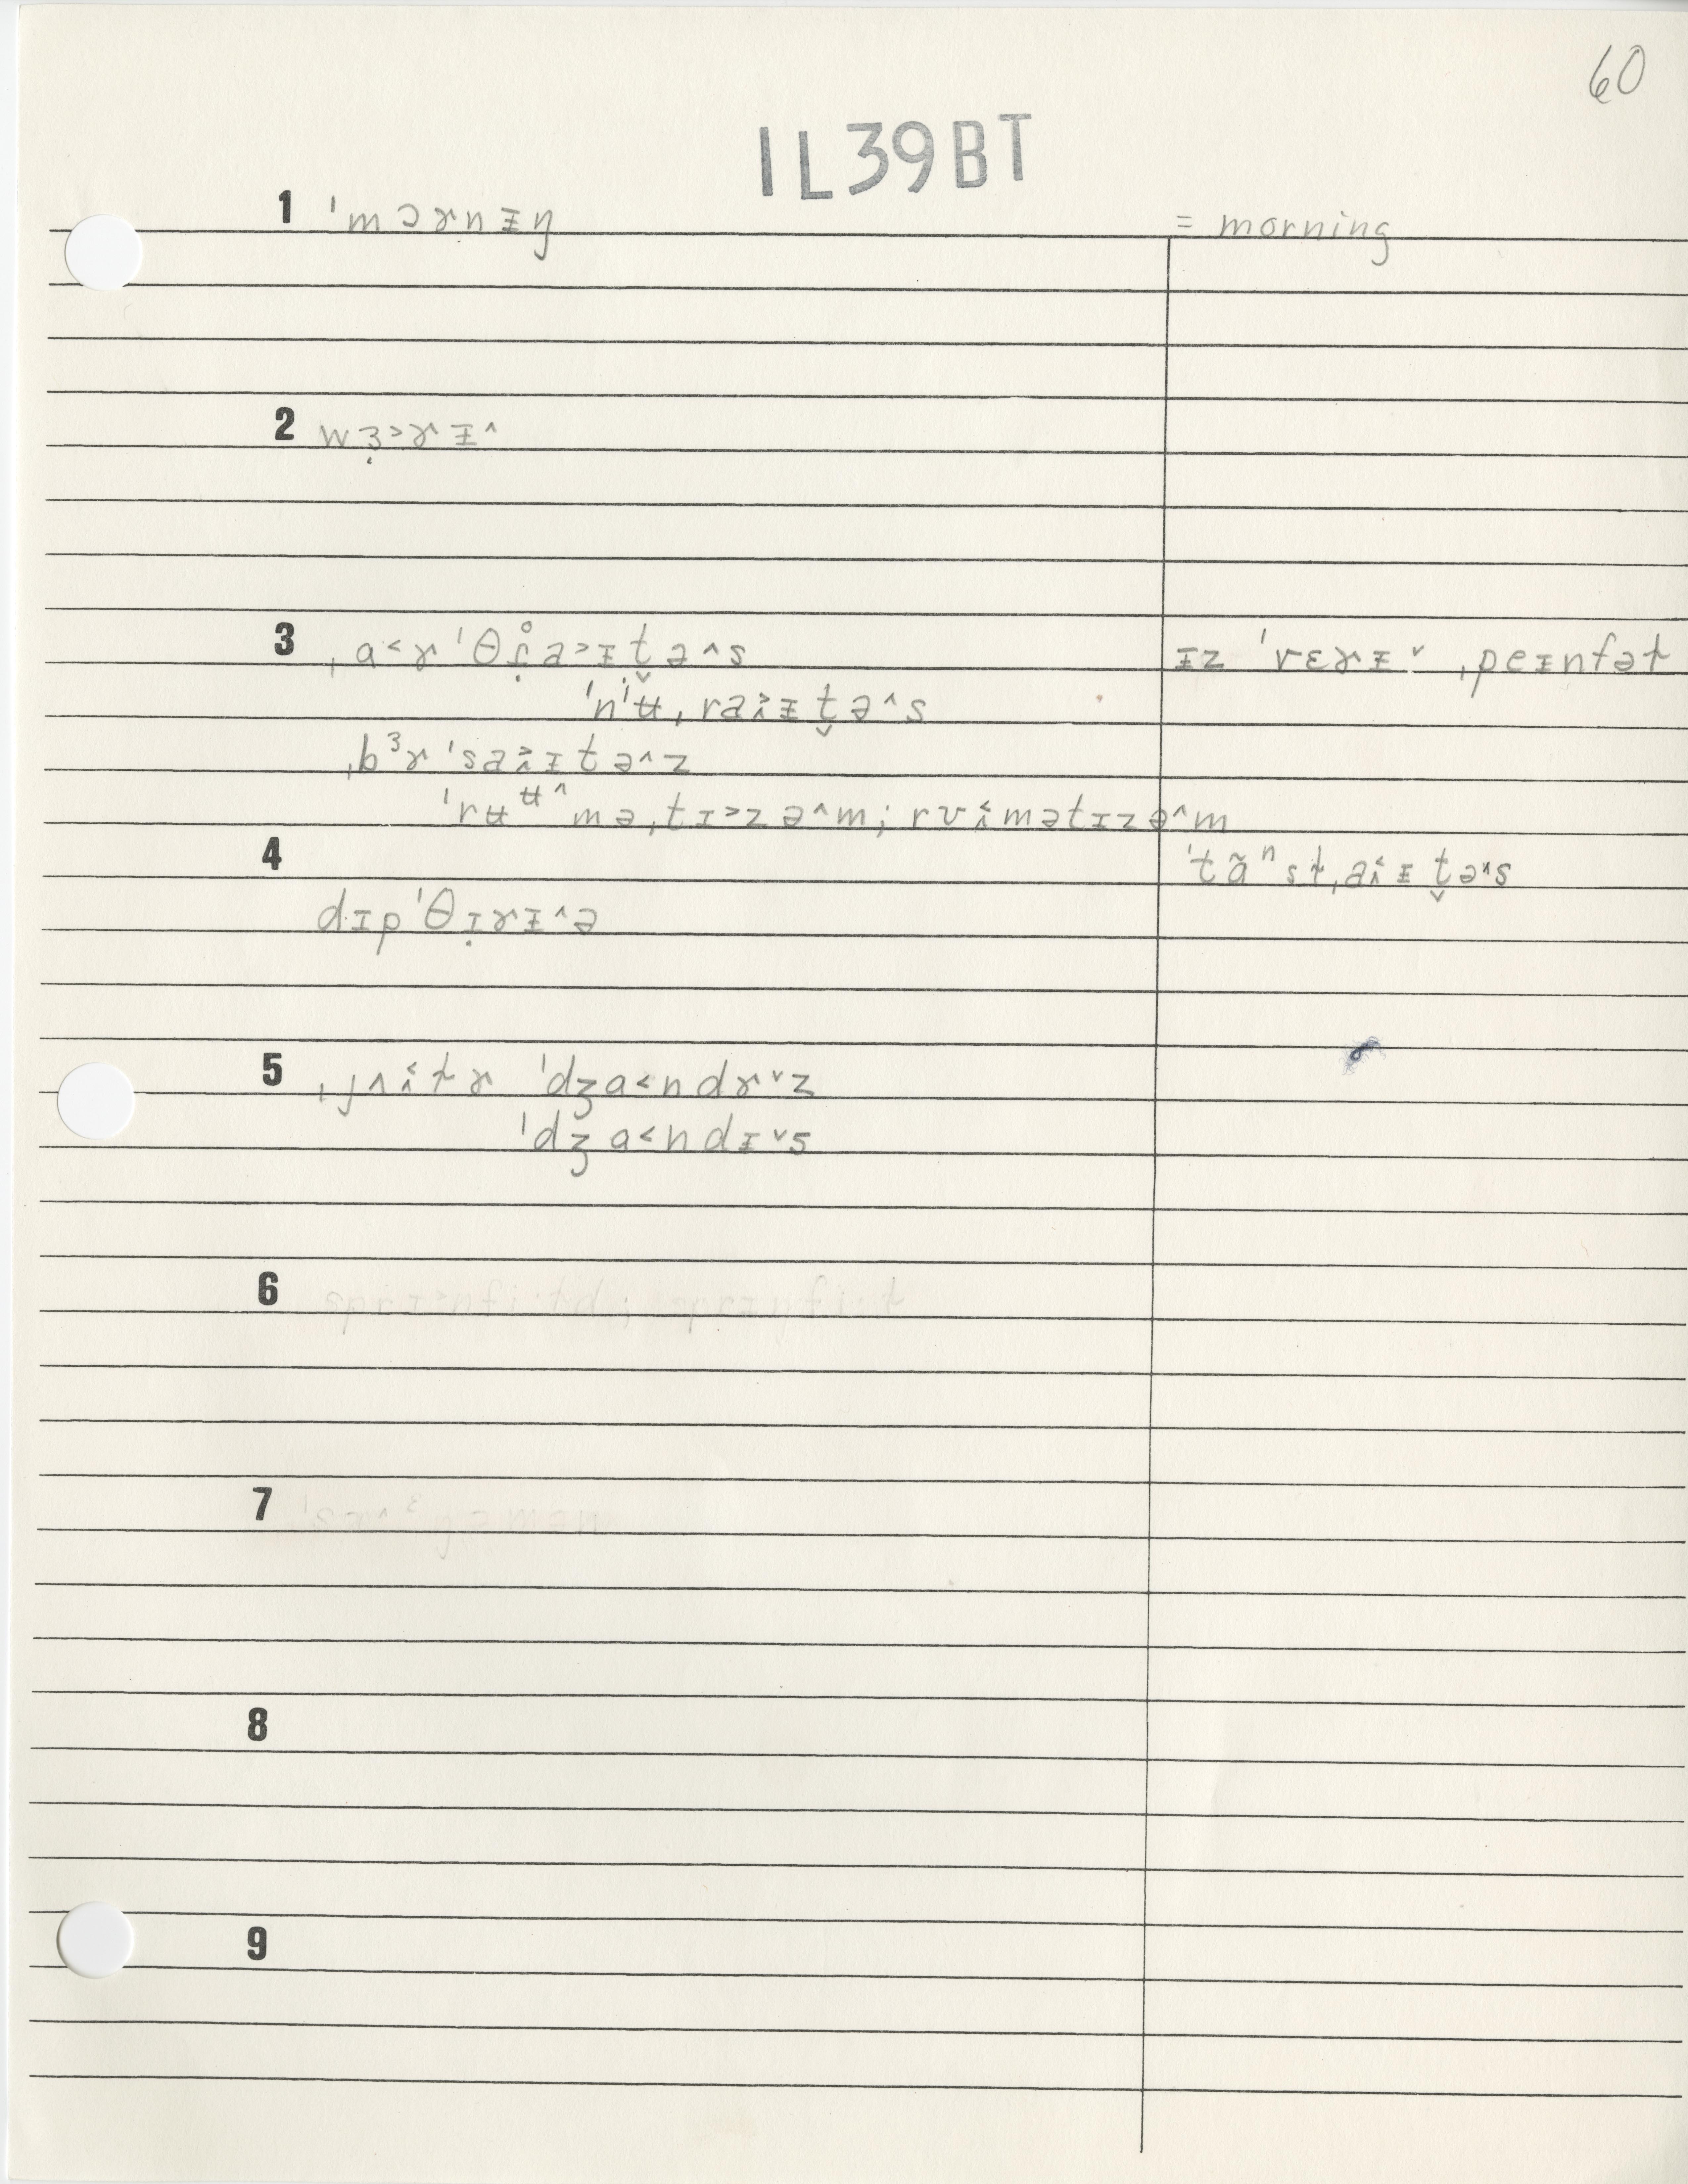 60
IL39BT
1 ˈmɔɚnᵻŋ = morning
2 wɜ̣˃ɚᵻ˄
3 ˌa˂ɚˈθṛ̊a˃ᵻt̬ə˄s ɪz ˈvɛɚᵻ˅ ˌpeɪnfət
ˈnʲʉˌraᵻt̬ə˄s
ˌbɜɚˈsaᵻtə˄z
ˈrʉʉ˄məˌtɪ˃zə˄m; rʊmətɪzə˄m
4 ˈtãⁿstˌaᵻt̬ə˄s
dɪpˈθɪ̣ɚᵻ˄ə
5 ˌjʌtɚ ˈdʒa˂ndɚ˅z
ˈdʒa˂ndᵻ˅s
6
7
8
9